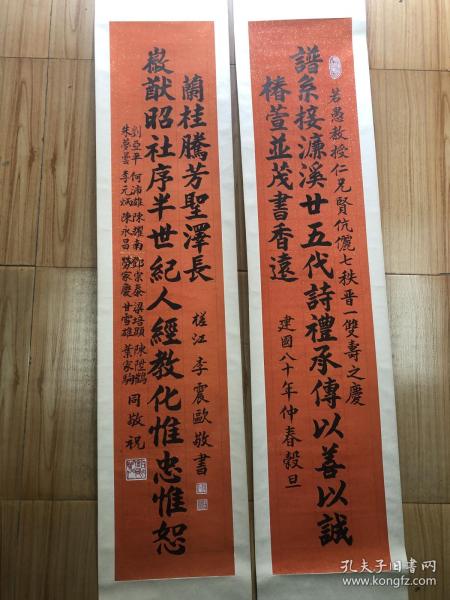 若愚教授仁兄賢伉儷七秩晋一雙壽之慶
譜系接濂溪廿五代詩禮承傳以善以誠
椿萱並茂書香遠
建國八十年仲春穀旦
徽猷昭社序半世紀人經教化惟忠惟恕
蘭桂騰芳聖澤長
槎江 李震歐敬書
劉亞平 何沛雄 陳耀南 鄧宗泰 梁培顯 陳陞鶴
朱夢曇 李元炳 陳永昌 勞家慶 甘雪雄 葉家駒
同敬祝
孔夫子旧书网
www.kongfz.com